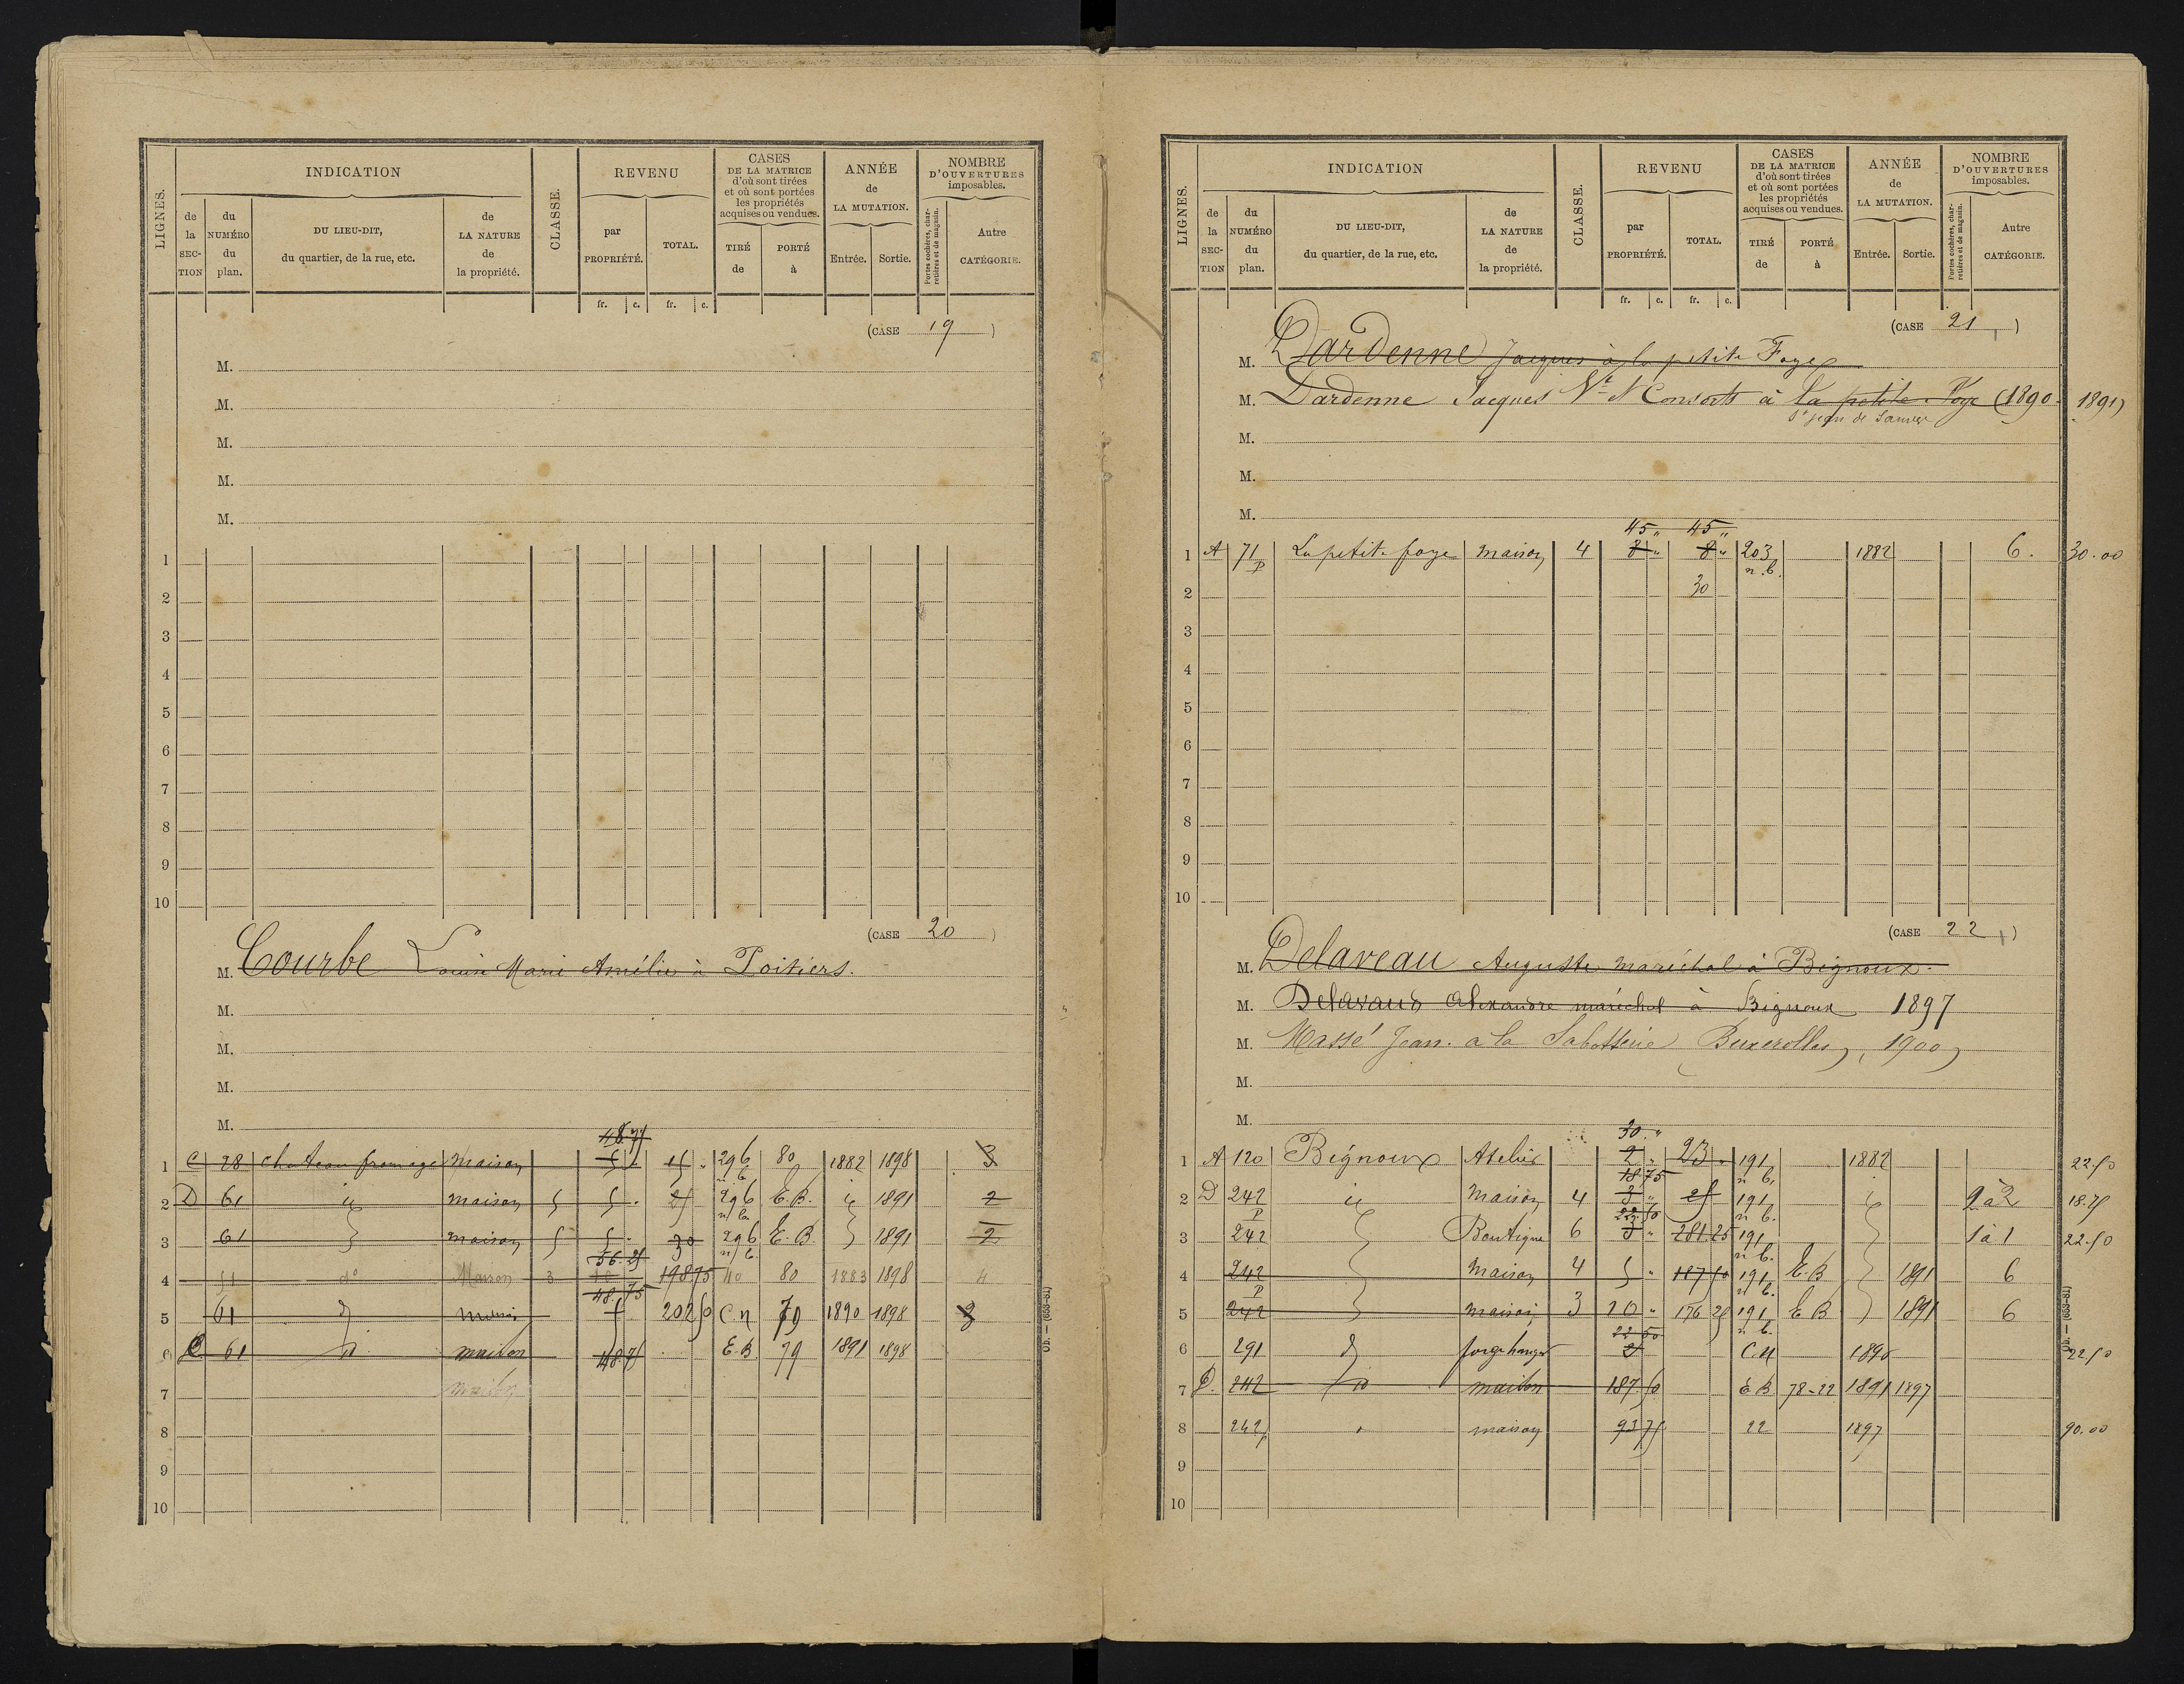 LIGNES.
INDICATION
de la SECTION
du NUMÉRO du plan.
DU LIEU-DIT, du quartier, de la rue, etc.
de LA NATURE de la propriété.
CLASSE.
REVENU
par PROPRIÉTÉ.
TOTAL.
CASES DE LA MATRICE d'où sont tirées et où sont portées les propriétés acquises ou vendues.
TIRÉ de
PORTÉ à
ANNÉE de LA MUTATION.
Entrée.
Sortie.
NOMBRE D'OUVERTURES imposables.
Portes cochères, charretières et de magasin.
Autre CATÉGORIE.
fr. c. fr. c.
(CASE 19)
M.
M.
M.
M.
M.
1
2
3
4
5
6
7
8
9
10
(CASE 20)
M. Courbe Louise Marie Amélie à Poitiers.
M.
M.
M.
M.
48.75
1 C 28 chateau fromage maison 296 80 1882 1898 3
n b
2 D 61 id maison 5 5 . 25 296 E.B. id 1891 2
n b
3 61 maison 5 5 . 30 296 E.B. 1891 2
56.25 n b
4 51 do Maison 3 10 198 75 10 80 1883 1898 4
48.75
5 61 d maison 202 50 C.N 79 1890 1898
6 61 maison 48.75 E.B 79 1891 1898
7 maison
8
9
10
LIGNES.
INDICATION
de la SECTION
du NUMÉRO du plan.
DU LIEU-DIT, du quartier, de la rue, etc.
de LA NATURE de la propriété.
CLASSE.
REVENU
par PROPRIÉTÉ.
TOTAL.
CASES DE LA MATRICE d'où sont tirées et où sont portées les propriétés acquises ou vendues.
TIRÉ de
PORTÉ à
ANNÉE de LA MUTATION.
Entrée.
Sortie.
NOMBRE D'OUVERTURES imposables.
Portes cochères, charretières et de magasin.
Autre CATÉGORIE.
fr. c. fr. c.
(CASE 21)
M. Dardenne Jacques à la petite Foye
M. Dardenne Jacques Vve & Consorts à la petite Foye (1890-1891)
St Jean de Sauves
M.
M.
M.
45 " 45 "
1 A 71 La petit foye maison 4 8 " 8 " 203 1882 6. 30.00
P n.b.
2 30
3
4
5
6
7
8
9
10
(CASE 22)
M. Delaveau Auguste maréchal à Bignoux.
M. Delavaud Alexandre maréchal à Bignoux 1897
M. Massé Jean. a la Sabotterie Buxerolles, 1900
M.
M.
30. "
1 A 120 Bignoux Atelier 2 " 23 191 1882 22.50
18.75 n b.
2 D 242 id Maison 4 3 " 25 191 id 2 à 2 18.75
P 22.50 n b.
3 242 Boutique 6 3 " 281.25 191 1 à 1 22.50
n b.
4 242 Maison 4 5 " 187 50 191 E.B 1891 6
P n b.
5 242 maison 3 10 " 176 25 191 E B 1891 6
22 50 n b.
6 291 d forge hangar C.N 1890 22.50
7 D. 242 maison 187.50 E B 78-22 1891 1897
8 242 p maison 93 75 22 1897 90.00
9
10